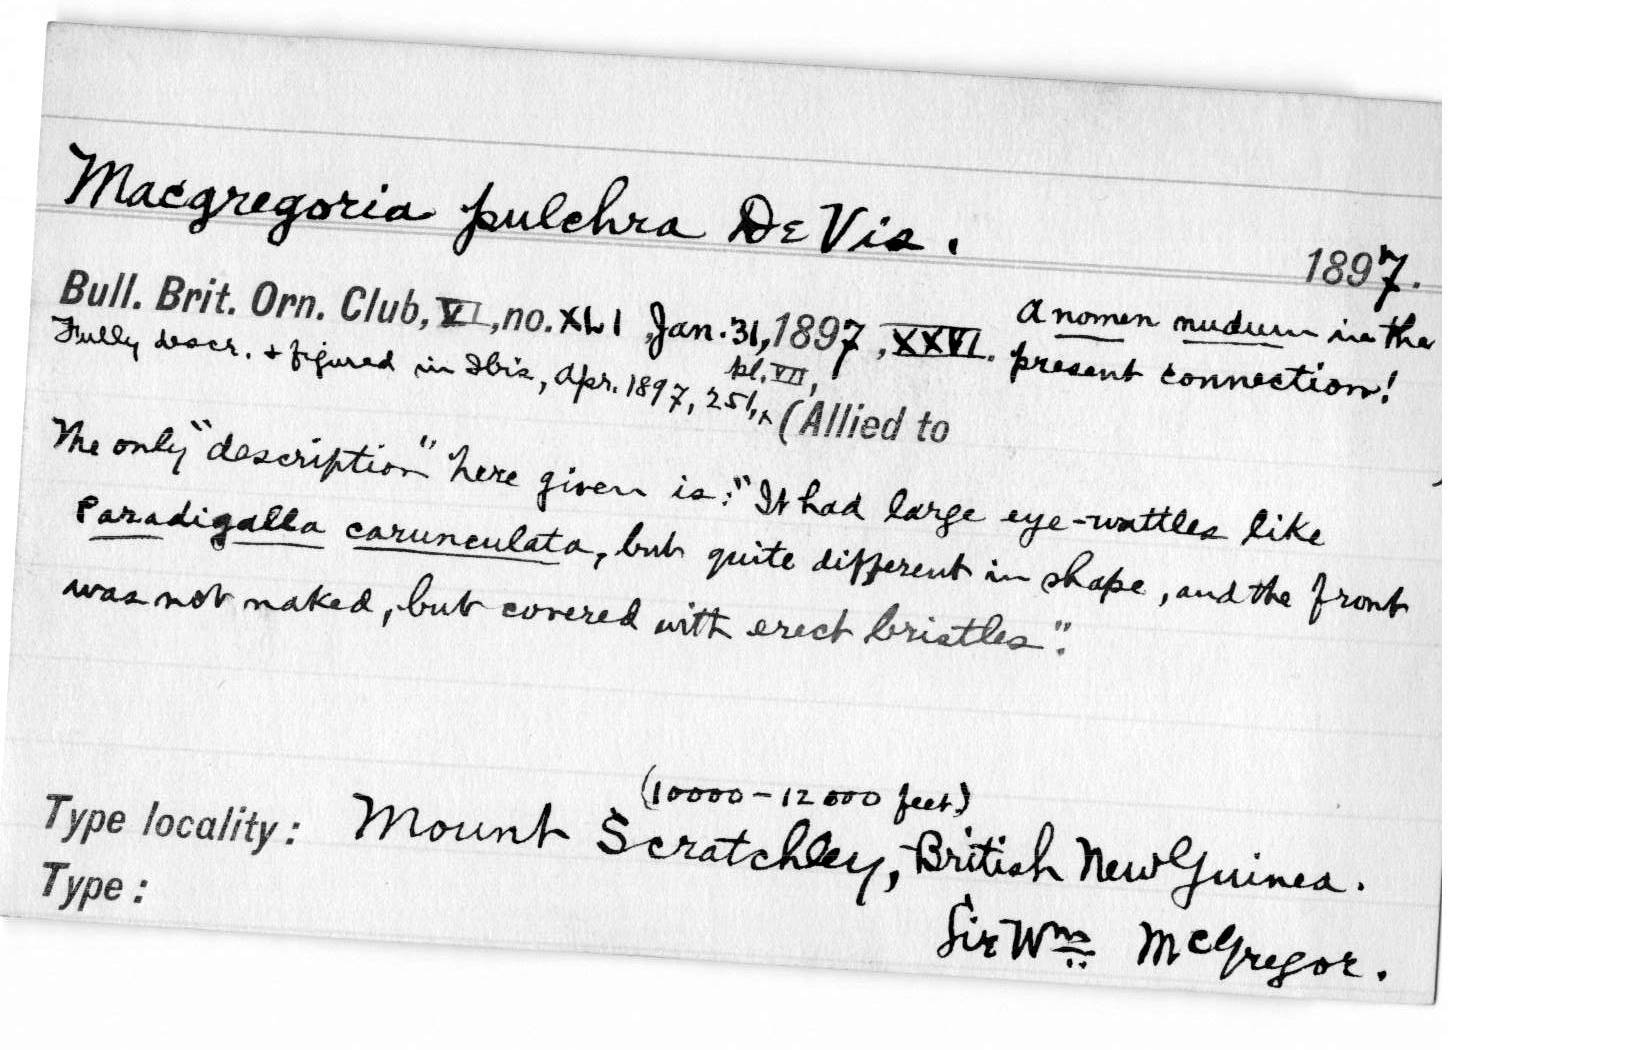 Macgregoria pulchra De Vis.
1897.
Bull. Brit. Orn. Club, VI, no. XLI, Jan. 31, 1897, XXVI. A nomen nudum in the
present connection!
Fully descr. + figured in Ibis, Apr. 1897, 251, pl. VII, (Allied to
The only "description" here given is: "It had large eye-wattles like
Paradigalla carunculata, but quite different in shape, and the front
was not naked, but covered with erect bristles".
(10000-12000 feet)
Type locality: Mount Scratchley, British New Guinea.
Type:
Sir Wm McGregor.